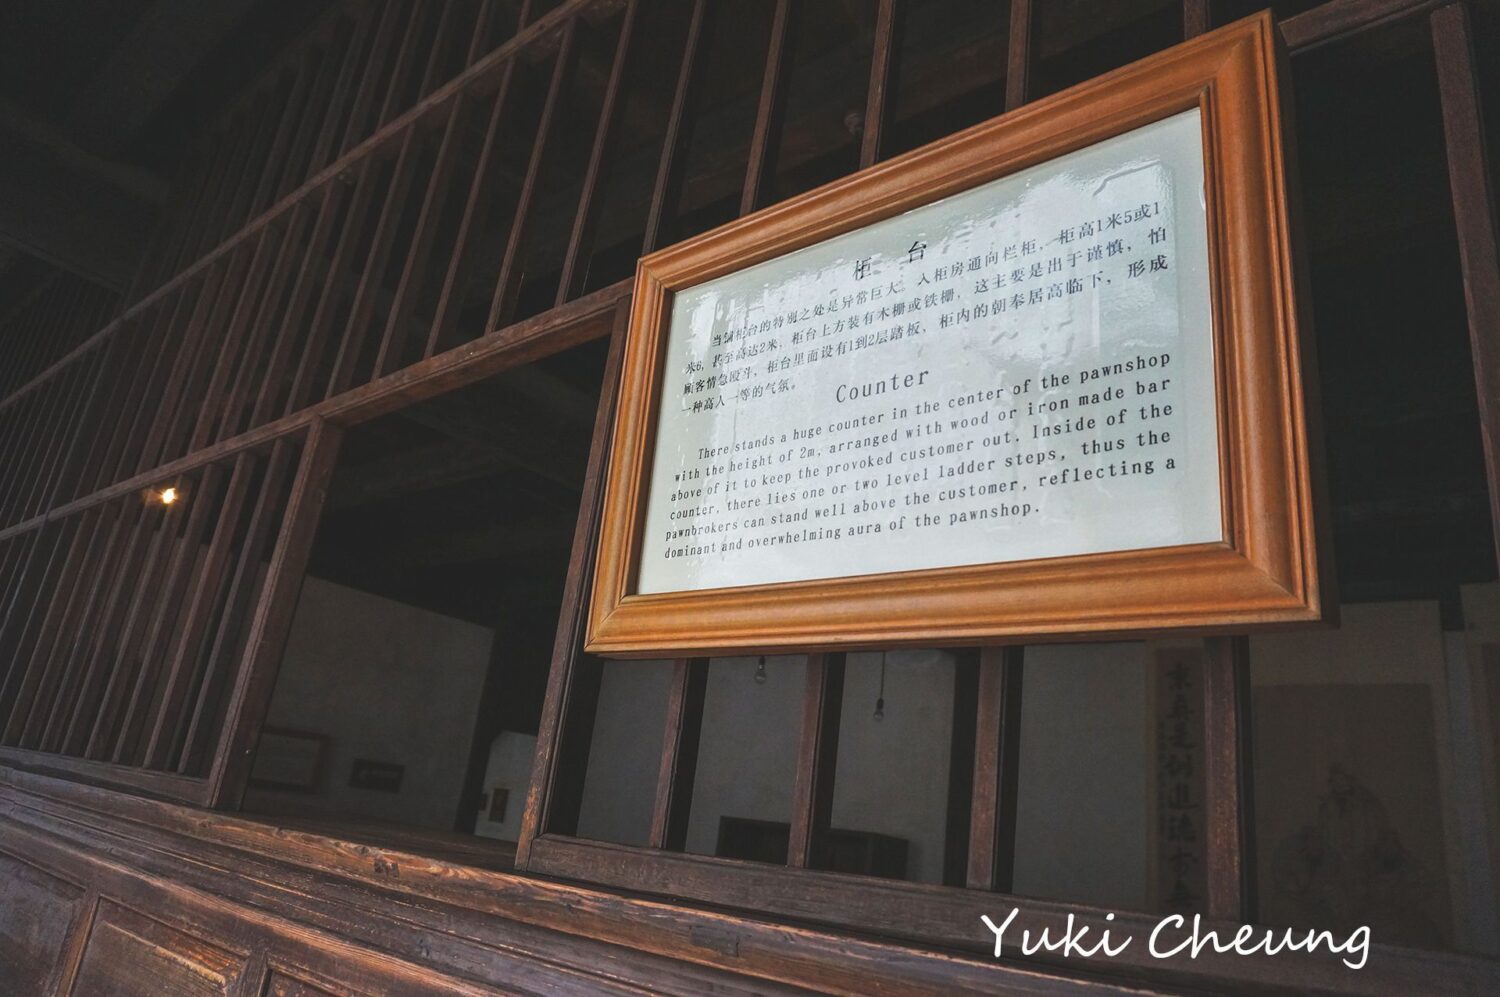 柜台
当铺柜台的特别之处是异常巨大。入柜房通向栏柜,一柜高1米5或1
米6,甚至高达2米,柜台上方装有木栅或铁栅,这主要是出于谨慎,怕
顾客情急殴斗,柜台里面设有1到2层踏板,柜内的朝奉居高临下,形成
一种高人一等的气氛。
Counter
There stands a huge counter in the center of the pawnshop
with the height of 2m, arranged with wood or iron made bar
above of it to keep the provoked customer out. Inside of the
counter, there lies one or two level ladder steps, thus the
pawnbrokers can stand well above the customer, reflecting a
dominant and overwhelming aura of the pawnshop.
Yuki Cheung